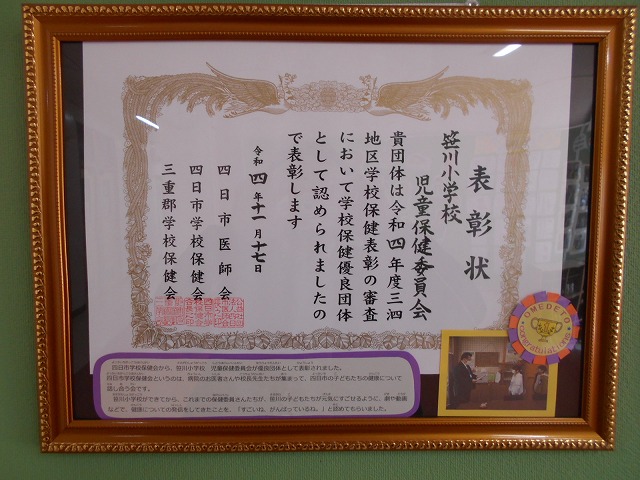 表彰状
笹川小学校
児童保健委員会
貴団体は令和四年度三泗
地区学校保健表彰の審査
において学校保健優良団体
として認められましたの
で表彰します
令和四年十一月十七日
四日市医師会
四日市学校保健会
三重郡学校保健会
OMEDETO
Congratulations
四日市学校保健会から、笹川小学校 児童保健委員会が優良団体として表彰されました。
四日市学校保健会というのは、病院のお医者さんや校長先生たちが集まって、四日市の子どもたちの健康について
話し合う会です。
笹川小学校ができてから、これまでの保健委員さんたちが、笹川の子どもたちが元気にすごせるように、劇や動画
などで、健康についての発信をしてきたことを、「すごいね。がんばっているね。」と認めてもらいました。